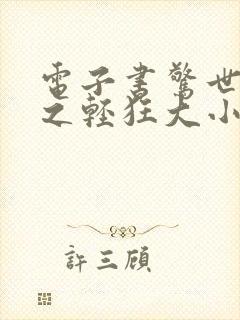 電子書驚世
之輕狂大小
許三顧